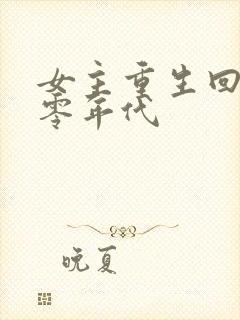 女主重生回
零年代
晚夏